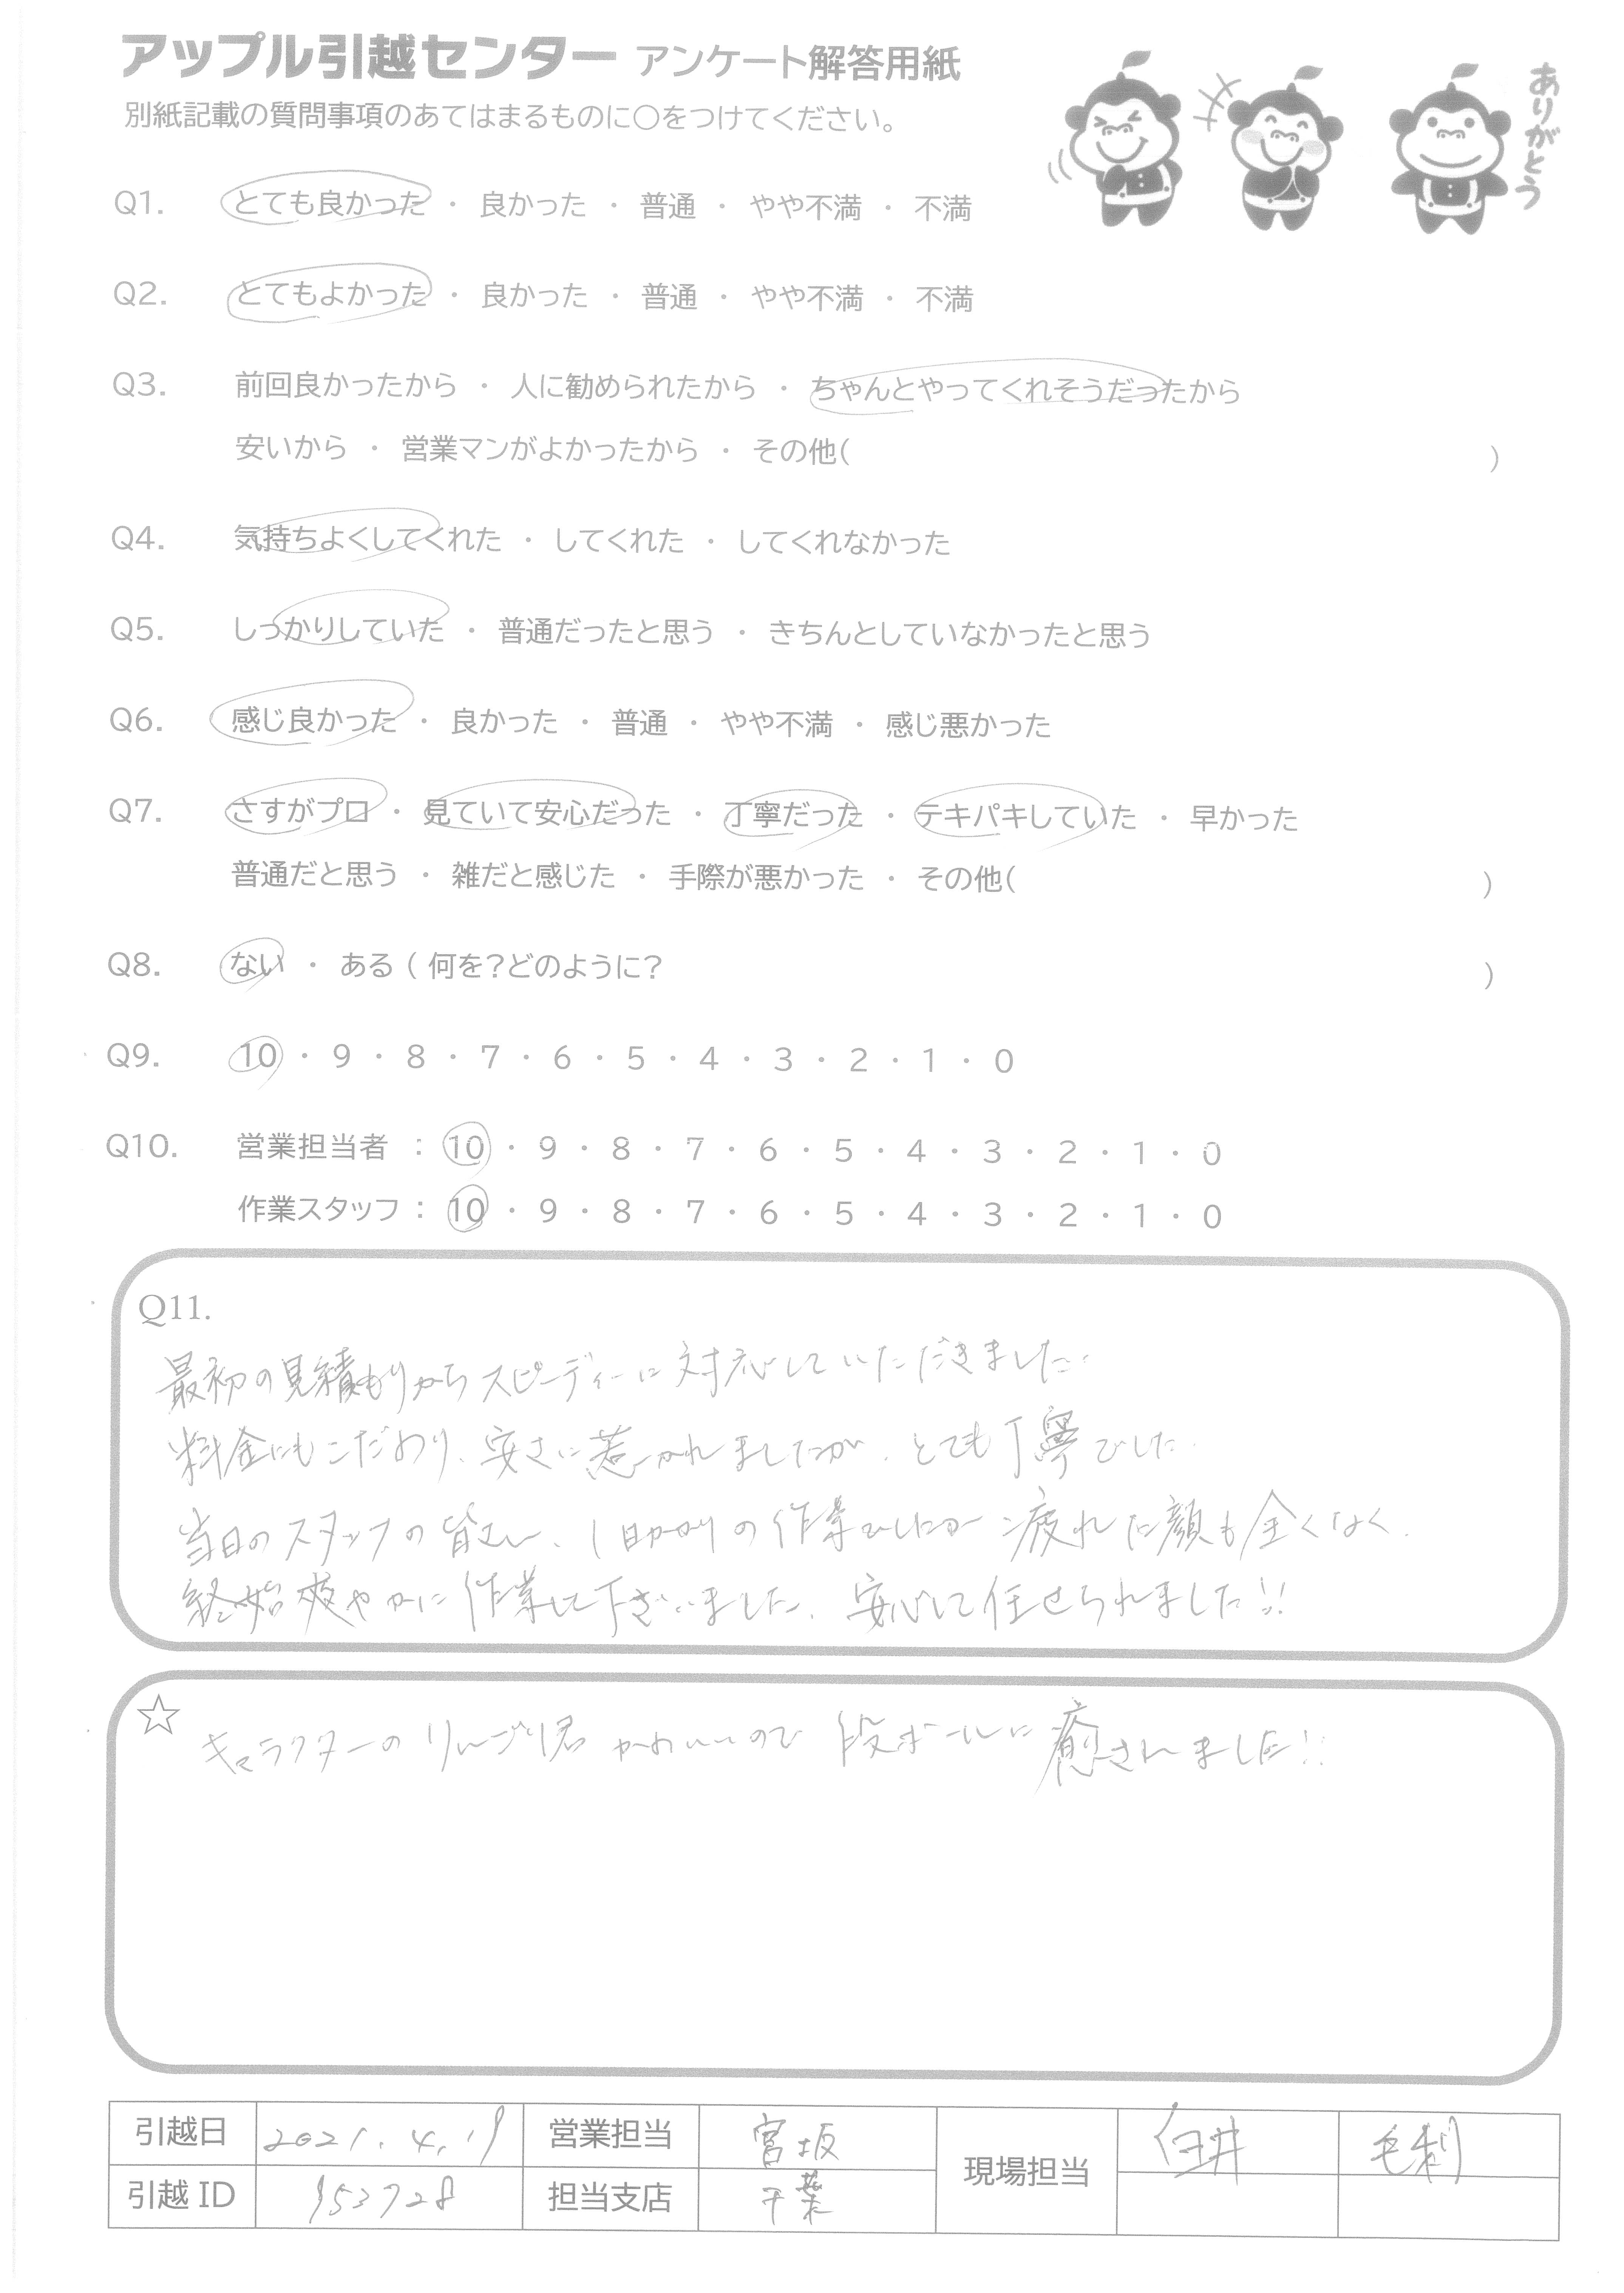 アップル引越センター アンケート解答用紙
別紙記載の質問事項のあてはまるものに○をつけてください。
ありがとう
Q1. とても良かった ・ 良かった ・ 普通 ・ やや不満 ・ 不満
Q2. とてもよかった ・ 良かった ・ 普通 ・ やや不満 ・ 不満
Q3. 前回良かったから ・ 人に勧められたから ・ ちゃんとやってくれそうだったから
安いから ・ 営業マンがよかったから ・ その他( )
Q4. 気持ちよくしてくれた ・ してくれた ・ してくれなかった
Q5. しっかりしていた ・ 普通だったと思う ・ きちんとしていなかったと思う
Q6. 感じ良かった ・ 良かった ・ 普通 ・ やや不満 ・ 感じ悪かった
Q7. さすがプロ ・ 見ていて安心だった ・ 丁寧だった ・ テキパキしていた ・ 早かった
普通だと思う ・ 雑だと感じた ・ 手際が悪かった ・ その他( )
Q8. ない ・ ある ( 何を?どのように? )
Q9. 10 ・ 9 ・ 8 ・ 7 ・ 6 ・ 5 ・ 4 ・ 3 ・ 2 ・ 1 ・ 0
Q10. 営業担当者 : 10 ・ 9 ・ 8 ・ 7 ・ 6 ・ 5 ・ 4 ・ 3 ・ 2 ・ 1 ・ 0
作業スタッフ : 10 ・ 9 ・ 8 ・ 7 ・ 6 ・ 5 ・ 4 ・ 3 ・ 2 ・ 1 ・ 0
Q11.
最初の見積もりからスピーディーに対応していただきました。
料金にもこだわり、安さに惹かれましたが、とても丁寧でした。
当日のスタッフの皆さん、1日がかりの作業でしたが疲れた顔も全くなく、
終始爽やかに作業して下さいました。安心して任せられました!!
☆ キャラクターのりんごり君かわいいので段ボールに癒されました!!
引越日 2021.4.19 営業担当 宮坂 現場担当 臼井 毛利
引越 ID 953728 担当支店 千葉